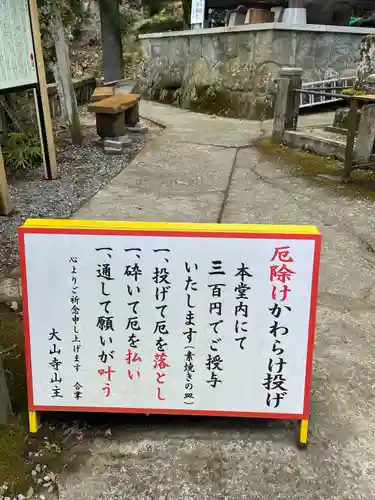 厄除けかわらけ投げ
本堂内にて
三百円でご授与
いたします(素焼きの皿)
一、投げて厄を落とし
一、砕いて厄を払い
一、通して願いが叶う
心よりご祈念申し上げます
大山寺山主 合掌